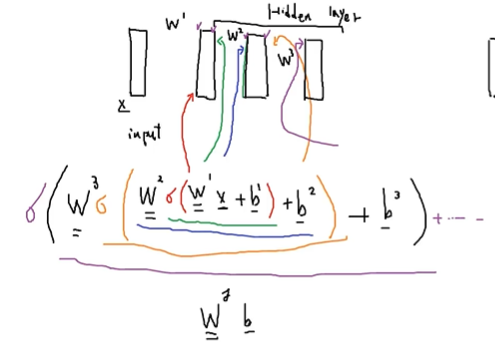 Hidden layer
W¹ W² W³
x
input
σ(W³ σ(W² σ(W¹ x + b¹) + b²) + b³) + ----
W⁷ b